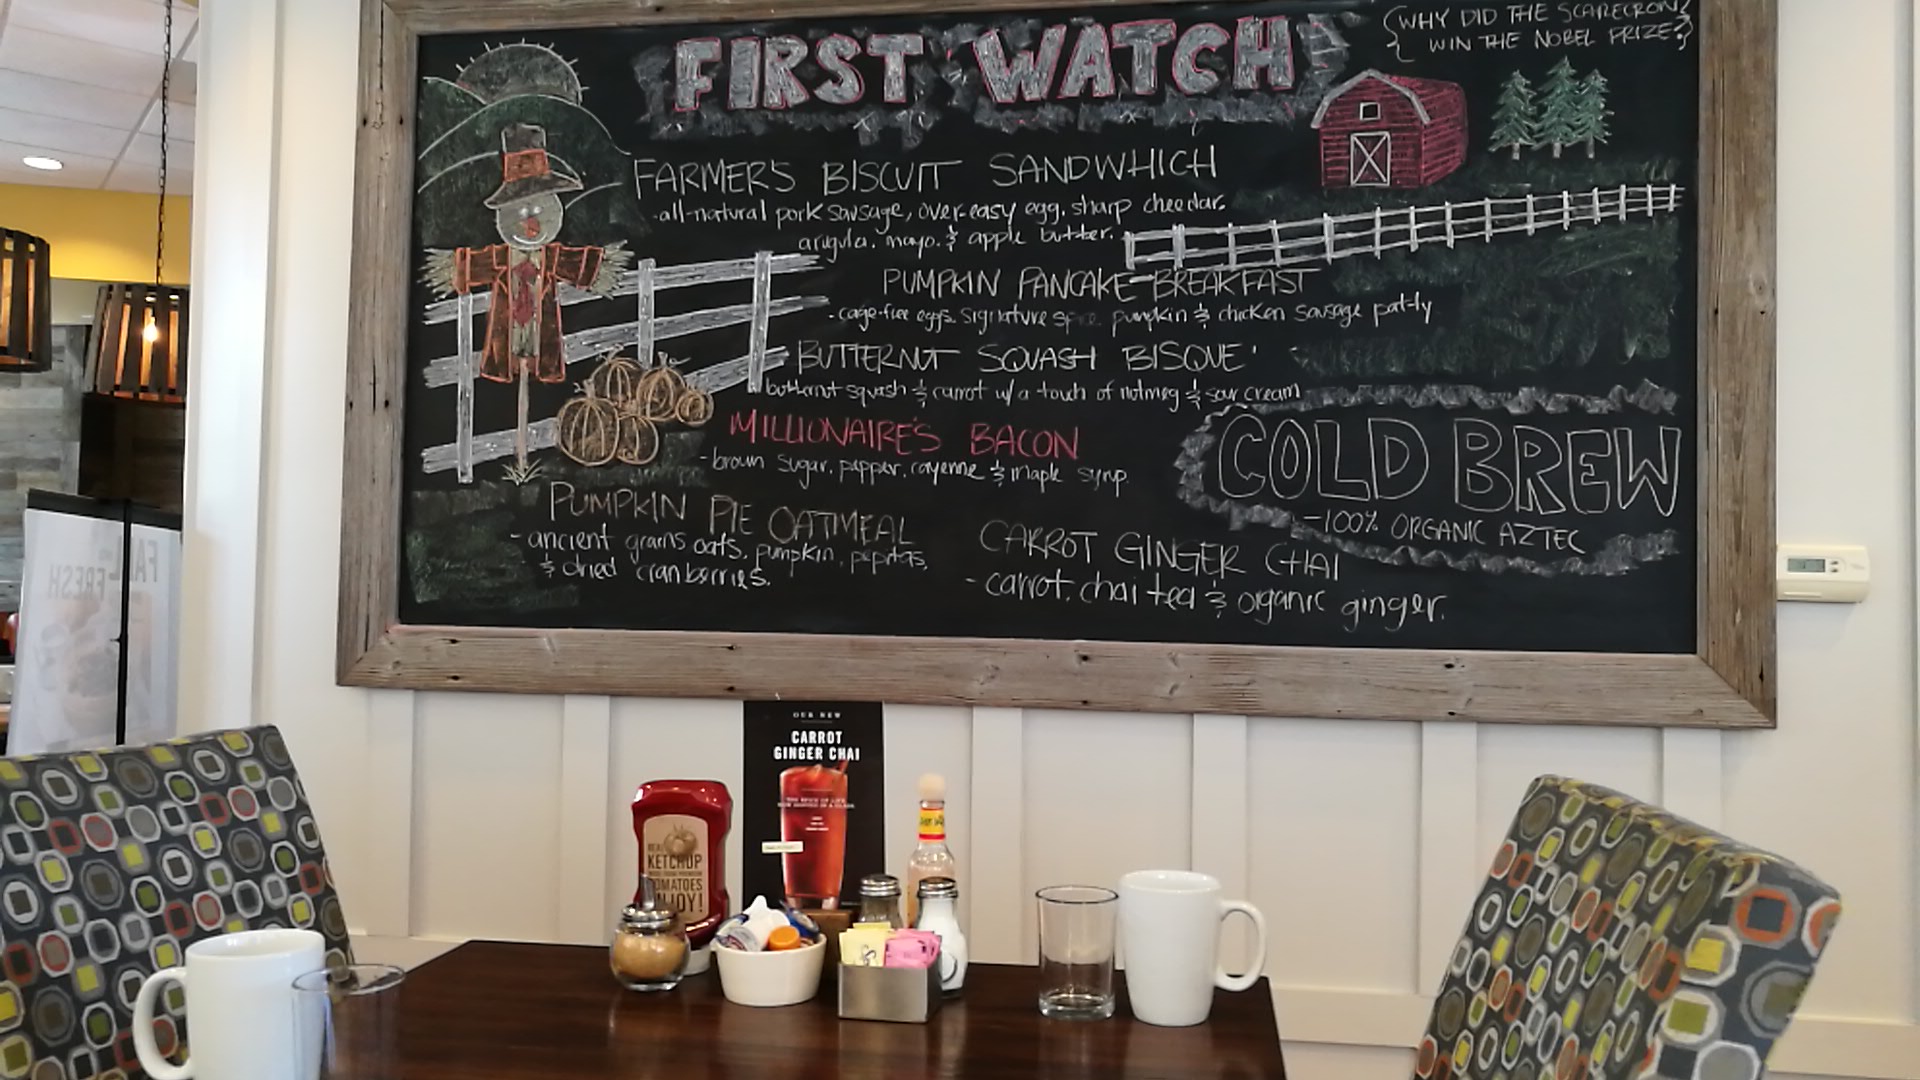 WHY DID THE SCARECROW
WIN THE NOBEL PRIZE?
FIRST WATCH
FARMER'S BISCUIT SANDWHICH
-all-natural pork sausage, over-easy egg, sharp cheedar,
arugula, mayo, & apple butter.
PUMPKIN PANCAKE BREAKFAST
-cage-free eggs, signature spice pumpkin & chicken sausage patty
BUTTERNUT SQUASH BISQUE
butternut squash & carrot w/ a touch of nutmeg & sour cream
MILLIONAIRE'S BACON
-brown sugar, pepper, cayenne & maple syrup.
COLD BREW
-100% ORGANIC AZTEC
PUMPKIN PIE OATMEAL
-ancient grains oats, pumpkin, pepitas,
& dried cranberries.
CARROT GINGER CHAI
-carrot, chai tea & organic ginger.
FRESH
OUR NEW
CARROT
GINGER CHAI
REAL
KETCHUP
TOMATOES
ENJOY!